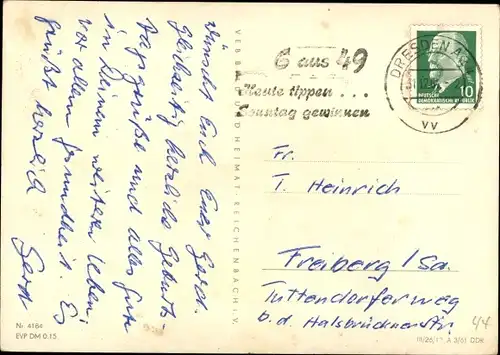 Wünscht Euch Euer Gerd.
Gleichzeitig herzliche Geburts-
tagsgrüße und alles Gute
in Deinem weiteren Leben,
vor allem Gesundheit. Es
grüßt herzlich
Gerd
Nr. 4184
EVP DM 0.15
VEB BILD UND HEIMAT · REICHENBACH I. V.
6 aus 49
Heute tippen . . .
Sonntag gewinnen
DRESDEN
vv
10
DEUTSCHE
DEMOKRATISCHE REPUBLIK
Fr.
T. Heinrich
Freiberg / Sa.
Tuttendorferweg
b. d. Halsbrückner Str.
44
A 3/61 DDR